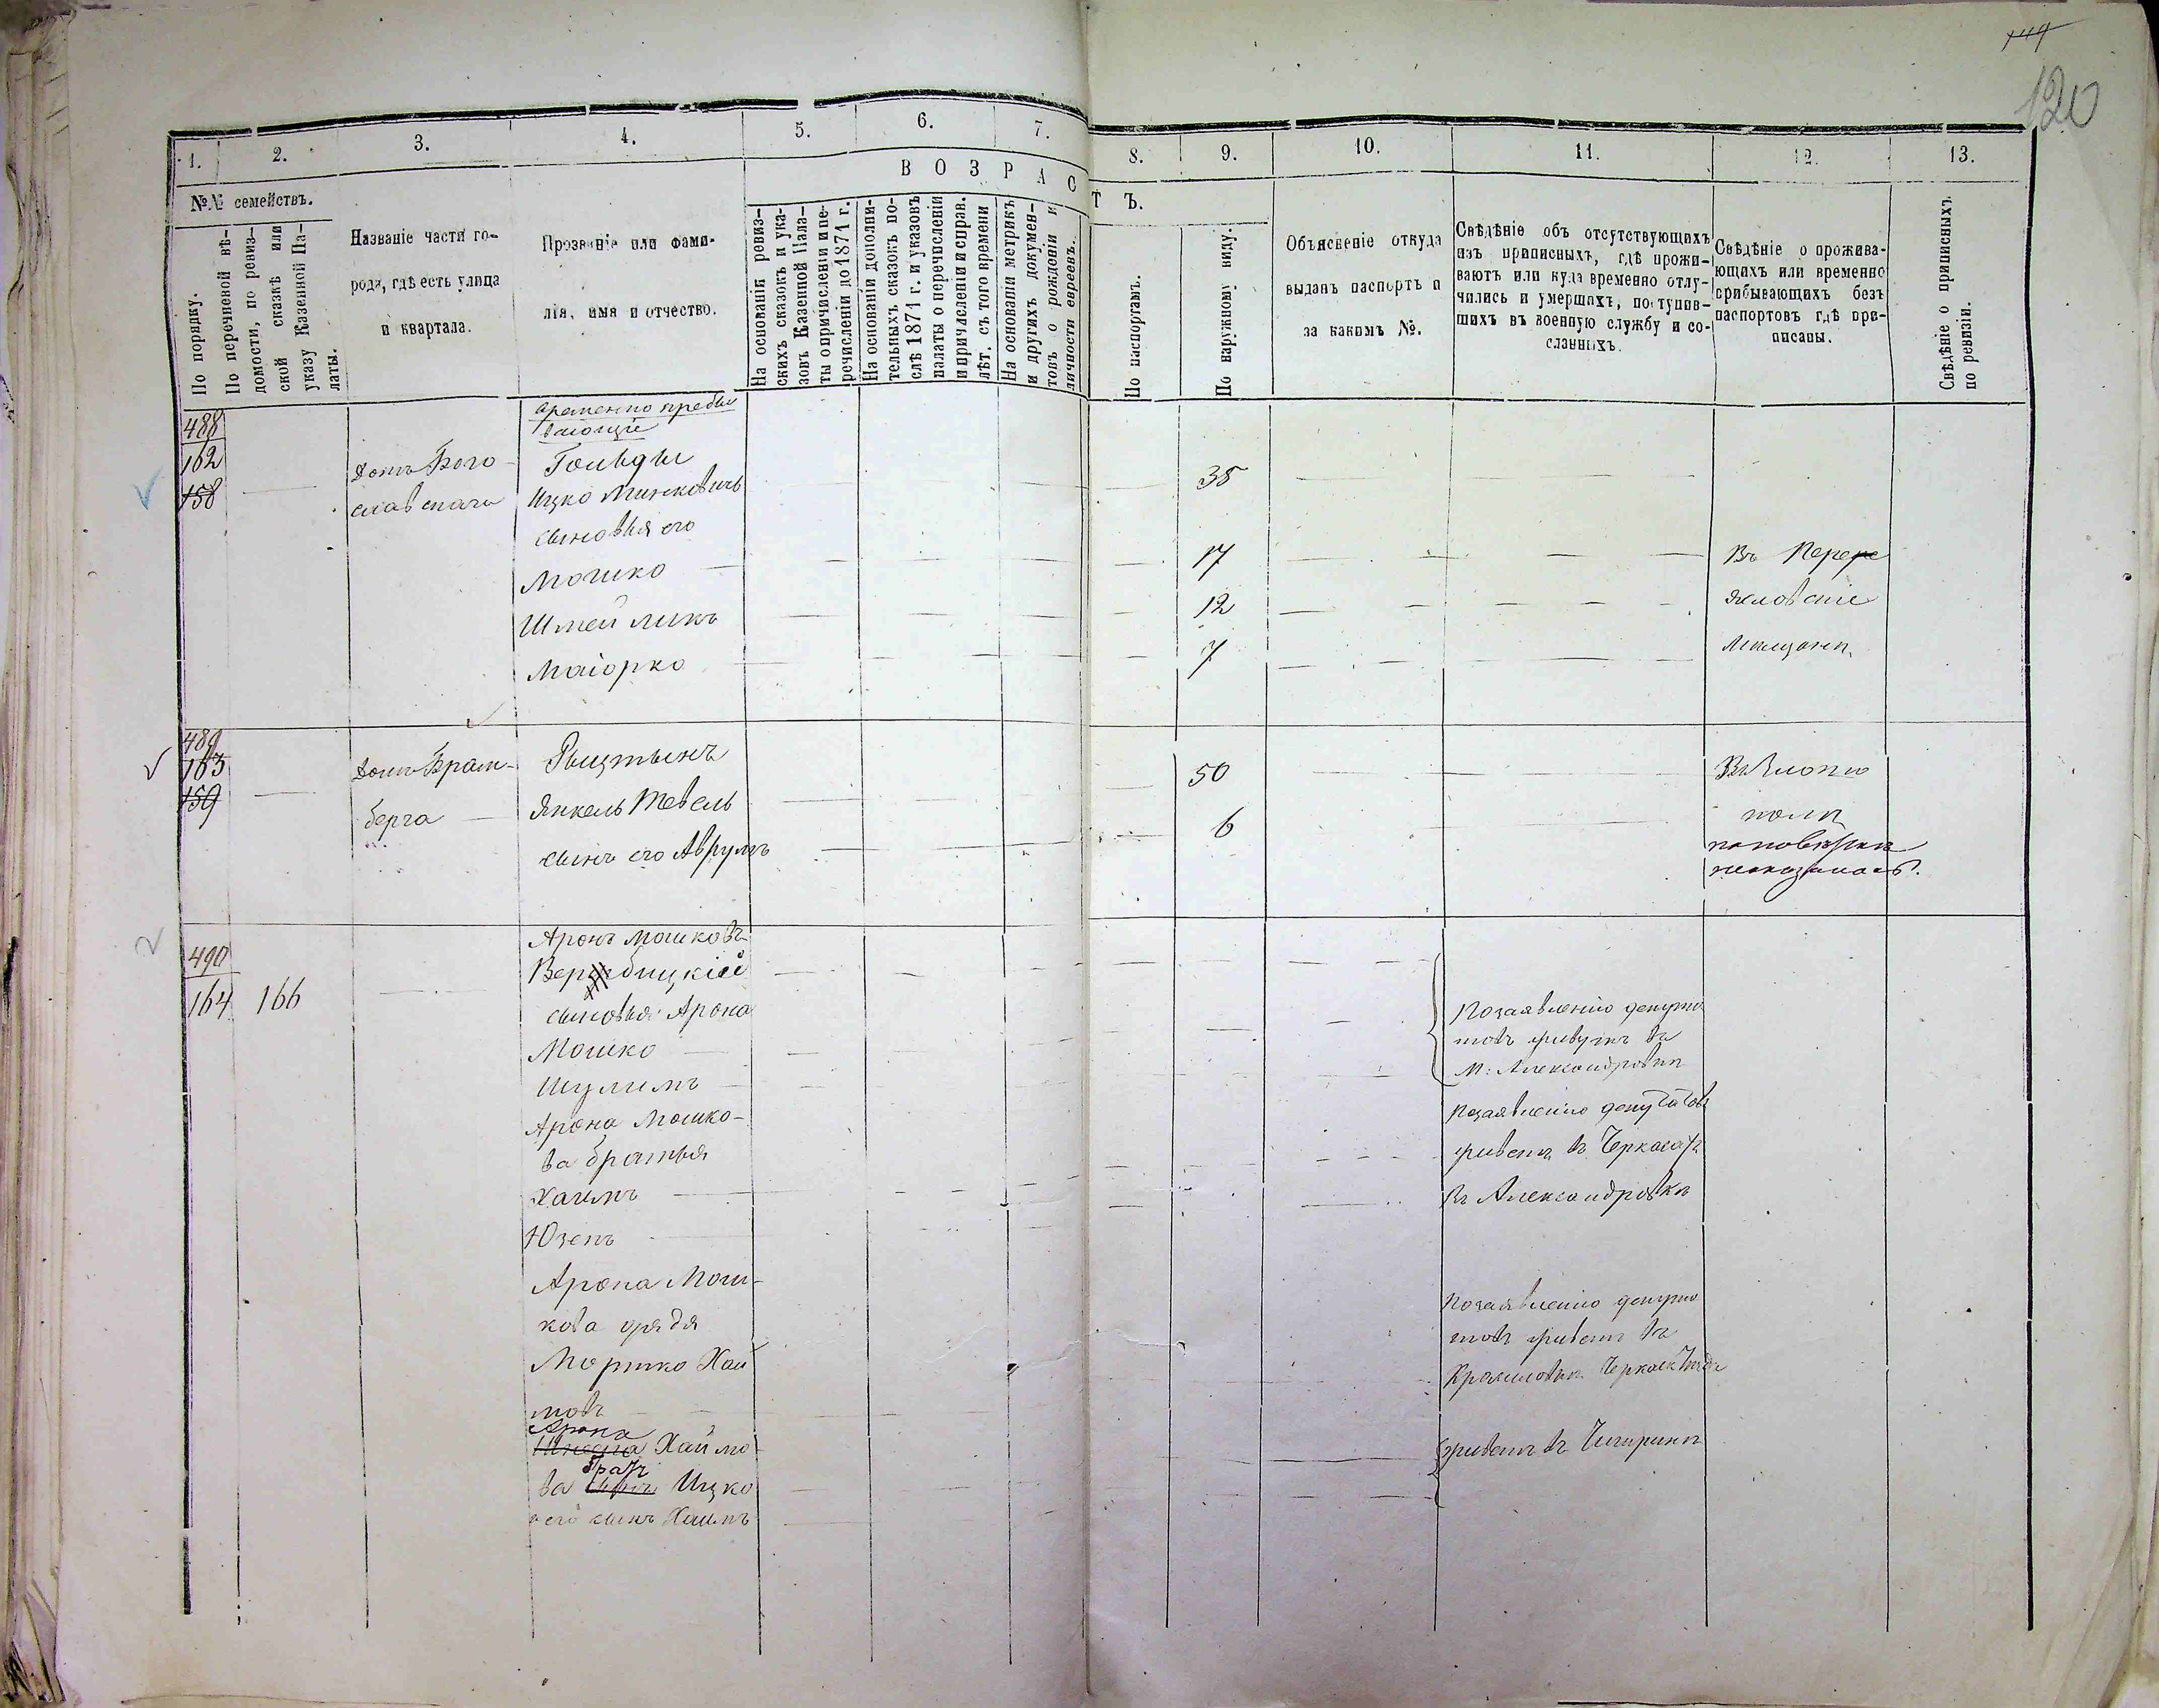 119
120
1.
2.
3.
4.
5.
6.
7.
8.
9.
10.
11.
12.
13.
ВОЗРАСТЪ.
№№ семействъ.
По порядку.
По перечневой вѣ-
домости, по ревиз-
ской сказкѣ или
указу Казенной Па-
латы.
Названіе части го-
рода, гдѣ есть улица
и квартала.
Прозваніе или фами-
лія, имя и отчество.
На основаніи ревиз-
скихъ сказокъ и ука-
зовъ Казенной Пала-
ты о причисленіи и пе-
речисленіи до 1871 г.
На основаніи дополни-
тельныхъ сказокъ по-
слѣ 1871 г. и указовъ
палаты о перечисленіи
и причисленіи и справ.
лѣт. съ того времени
На основаніи метрикъ
и другихъ докумен-
товъ о рожденіи и
личности евреевъ.
По паспортамъ.
По наружному виду.
Объясненіе откуда
выданъ паспортъ и
за какимъ №.
Свѣдѣніе объ отсутствующихъ
изъ приписныхъ, гдѣ прожи-
ваютъ или куда временно отлу-
чились и умершихъ, поступив-
шихъ въ военную службу и со-
сланныхъ.
Свѣдѣніе о прожива-
ющихъ или временно
прибывающихъ безъ
паспортовъ гдѣ при-
писаны.
Свѣдѣніе о приписныхъ
по ревизіи.
488
162
158
Домъ Бого
славскаго
временно пребы
вающіе
Гольды
Ицко Минковичъ
35
сыновья его
Мошко
17
Въ Перере
Шмейликъ
12
яславскіе
Маіорко
7
Мѣщане
489
163
159
Домъ Брам-
берга
Янкель Тевель
50
сынъ его Аврумъ
6
Въ Злото
поли
по повѣрки
неоказалась.
490
164 166
Аронъ Мошковъ
Вербицкій
сыновья Арона
Мошко
Шулимъ
По заявленію депута
товъ живутъ въ
М: Александровки
Арона Мошко-
ва братья
Хаимъ
По заявленію депутатовъ
живетъ въ Черкасахъ
Юзепъ
въ Александровкѣ
Арона Мош-
кова дядя
Мортко Хаи
мовъ
По заявленію депута
товъ живетъ въ
Арона
Хаймо
ва братъ Ицко
его сынъ Хаимъ
живетъ въ Чигирини